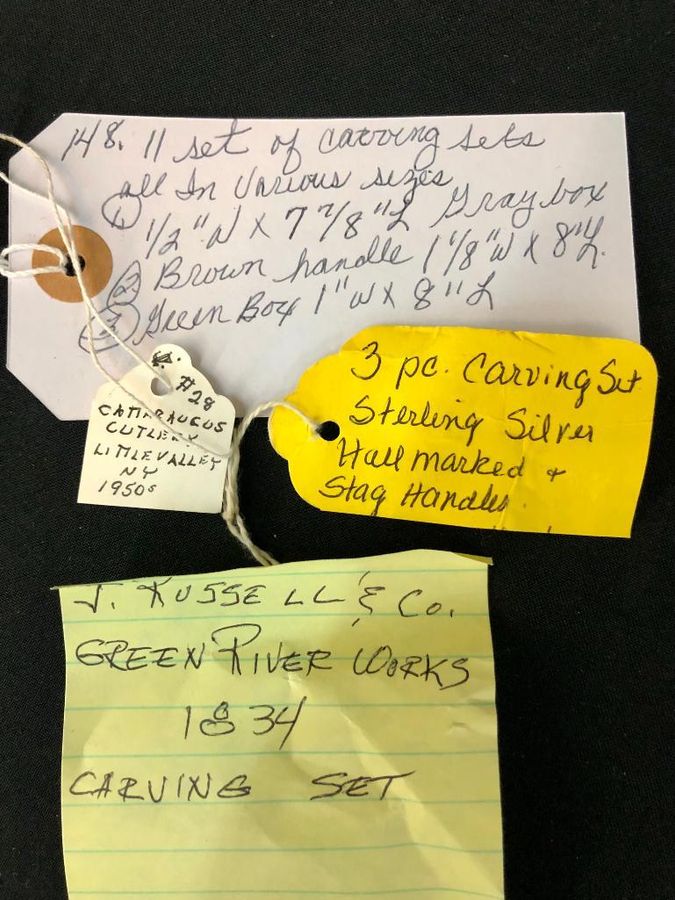 148. 11 set of carving sets
all In various sizes
① 1/2" W X 7 7/8" L Gray box
② Brown handle 1 1/8" W X 8" L.
③ Green Box 1" W X 8" L
#28
CATTARAUGUS
CUTLERY
LITTLE VALLEY
NY
1950s
3 pc. Carving Set
Sterling Silver
Hallmarked +
Stag Handles
J. RUSSELL & Co.
GREEN RIVER WORKS
1834
CARVING SET